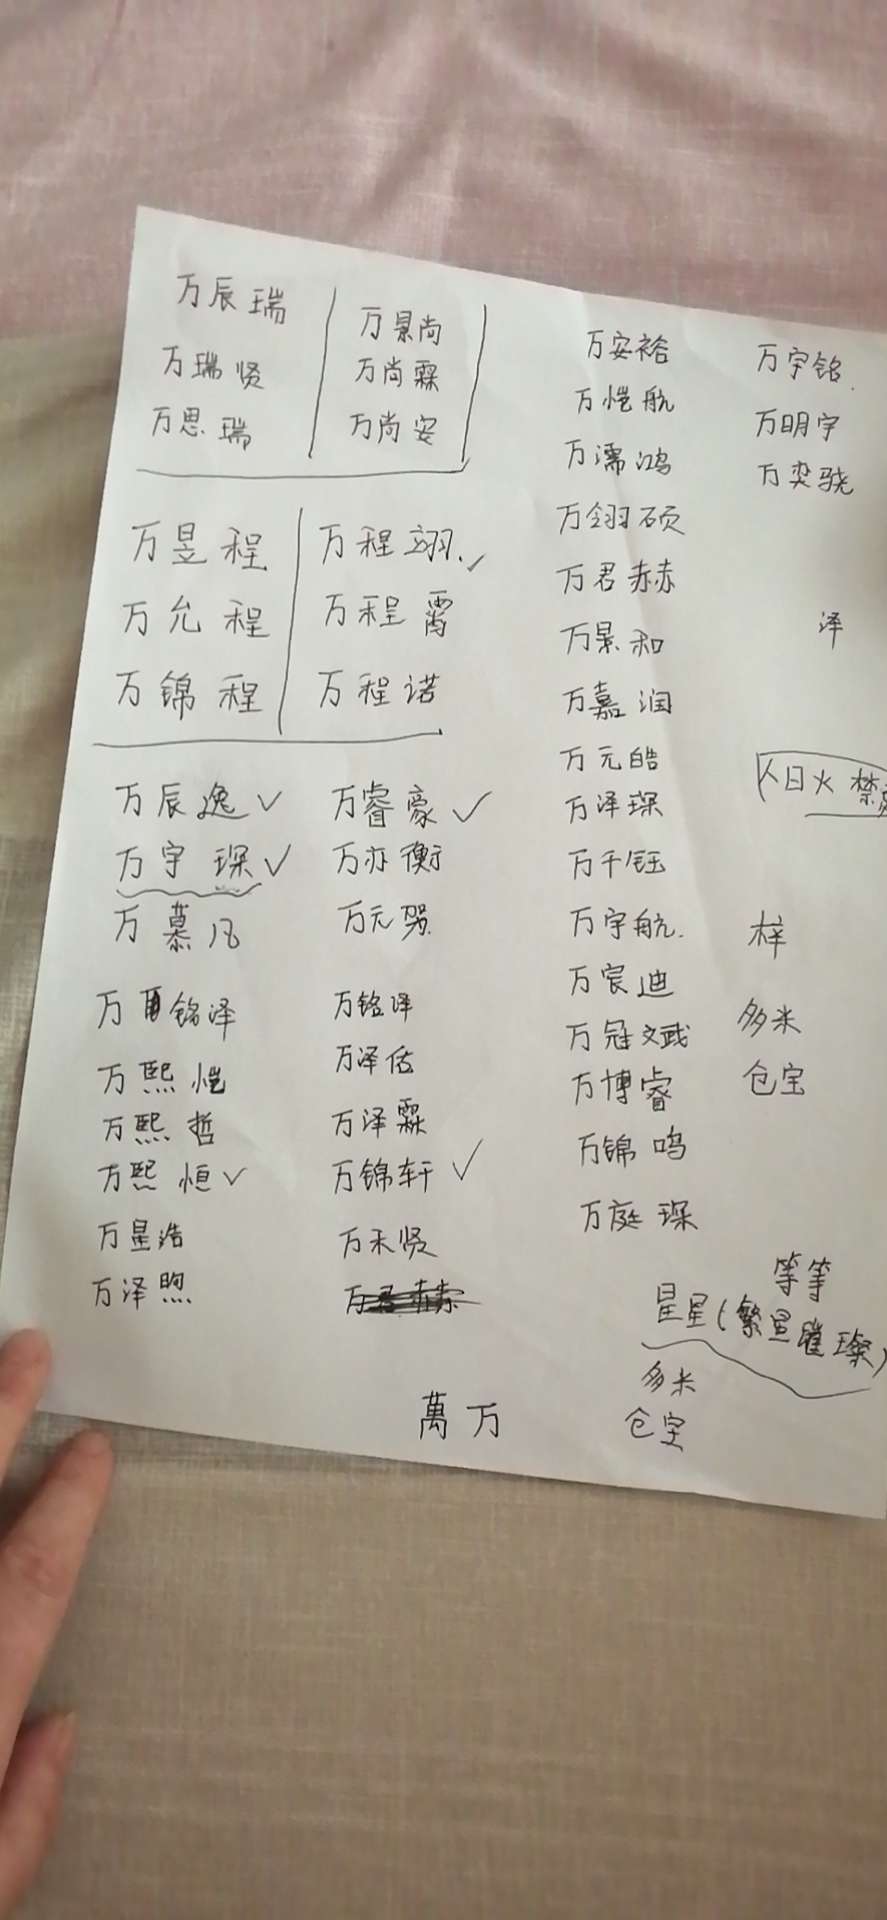 万辰瑞
万瑞贤
万思瑞
万景尚
万尚霖
万尚安
万昱程
万允程
万锦程
万程翊
万程霄
万程诺
万辰逸
万宇琛
万慕凡
万睿豪
万亦衡
万元
万铭泽
万熙恺
万熙哲
万熙恒
万星浩
万泽煦
万铭泽
万泽佑
万泽霖
万锦轩
万禾贤
万安裕
万恺航
万濡鸿
万翎硕
万君赫
万景和
万嘉润
万元皓
万泽琛
万千钰
万宇航
万宸迪
万冠斌
万博睿
万锦鸣
万庭琛
万宇铭
万明宇
万奕骁
泽
人日火 禁忌
梓
多米
仓宝
等等
星星(繁星璀璨)
多米
仓宝
萬万